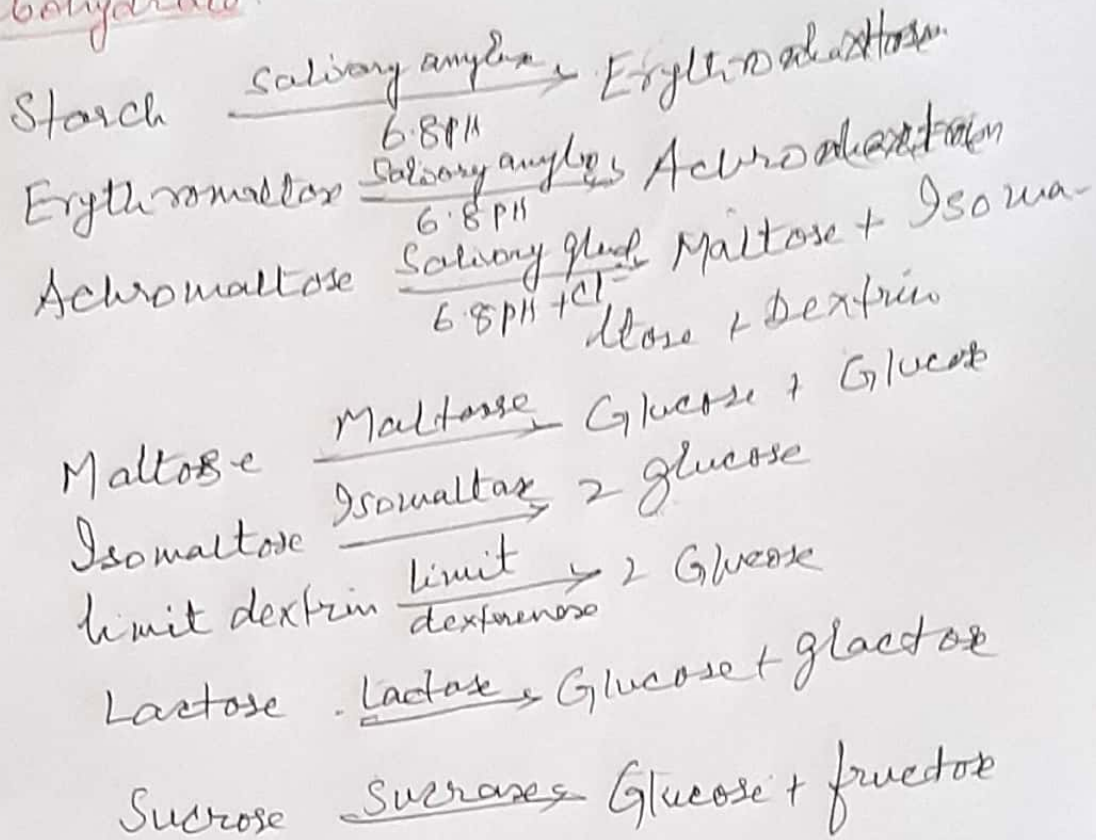 Starch salivary amylase → Erythrodextrose
6.8PH
Erythromaltose Salivary amylase → Achrodextron
6.8PH
Achromaltose Salivary gland → Maltose + Isoma-
6.8PH + Cl⁻ ltose + Dextrin
Maltose Maltase → Glucose + Glucose
Isomaltose Isomaltase → 2 glucose
limit dextrin limit → 2 Glucose
dextrenase
Lactose Lactase → Glucose + glactose
Sucrose Sucrases → Glucose + fructose